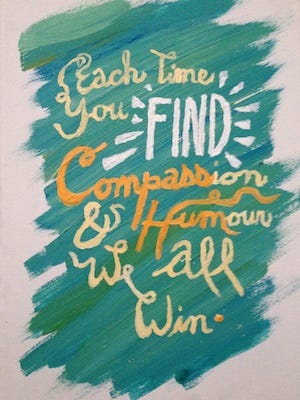 Each Time
You FIND
Compassion
& Humour
We all
Win.